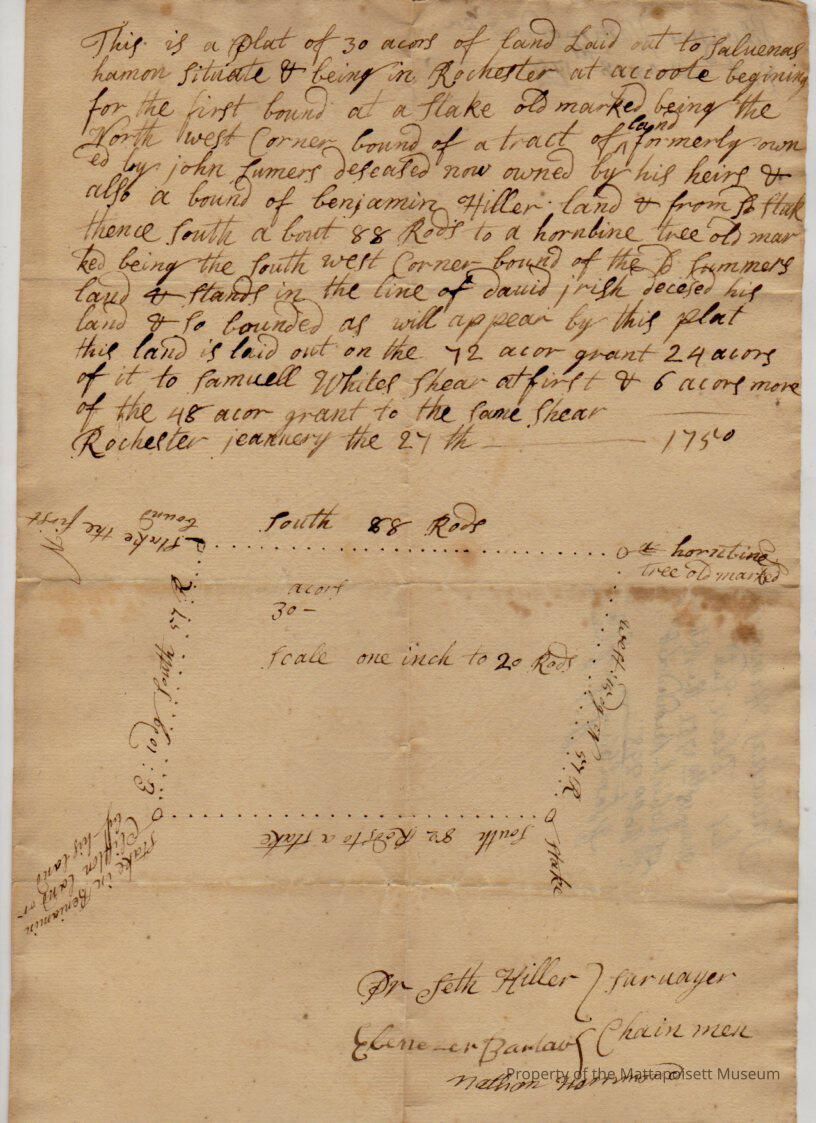 This is a plat of 30 acors of land Laid out to Saluenas
hamon Situate & being in Rochester at accoote begining
for the first bound at a Stake old marked being the
North west Corner bound of a tract of land formerly own
ed by john Sumers deseased now owned by his heirs &
also a bound of benjamin Hiller land & from sd Stak
thence South a bout 88 Rods to a hornbine tree old mar
ked being the South west Corner bound of the sd Summers
land & Stands in the line of dauid jrish decesed his
land & So bounded as will appear by this plat
this land is laid out on the 72 acor grant 24 acors
of it to Samuell Whites Shear at first & 6 acors more
of the 48 acor grant to the Same Shear
Rochester jeanuery the 27 th 1750
Stake the first
bound
South 88 Rods
a hornbine
tree old marked
acors
30
Scale one inch to 20 Rods
South 57 R
57 R
South 82 Rods to a stake
Stake
Stake in Benjamin
Clifton land or
his land
Pr Seth Hiller } Saruayer
Ebenezer Barlow } Chain men
Nathan Hammond
Property of the Mattapoisett Museum